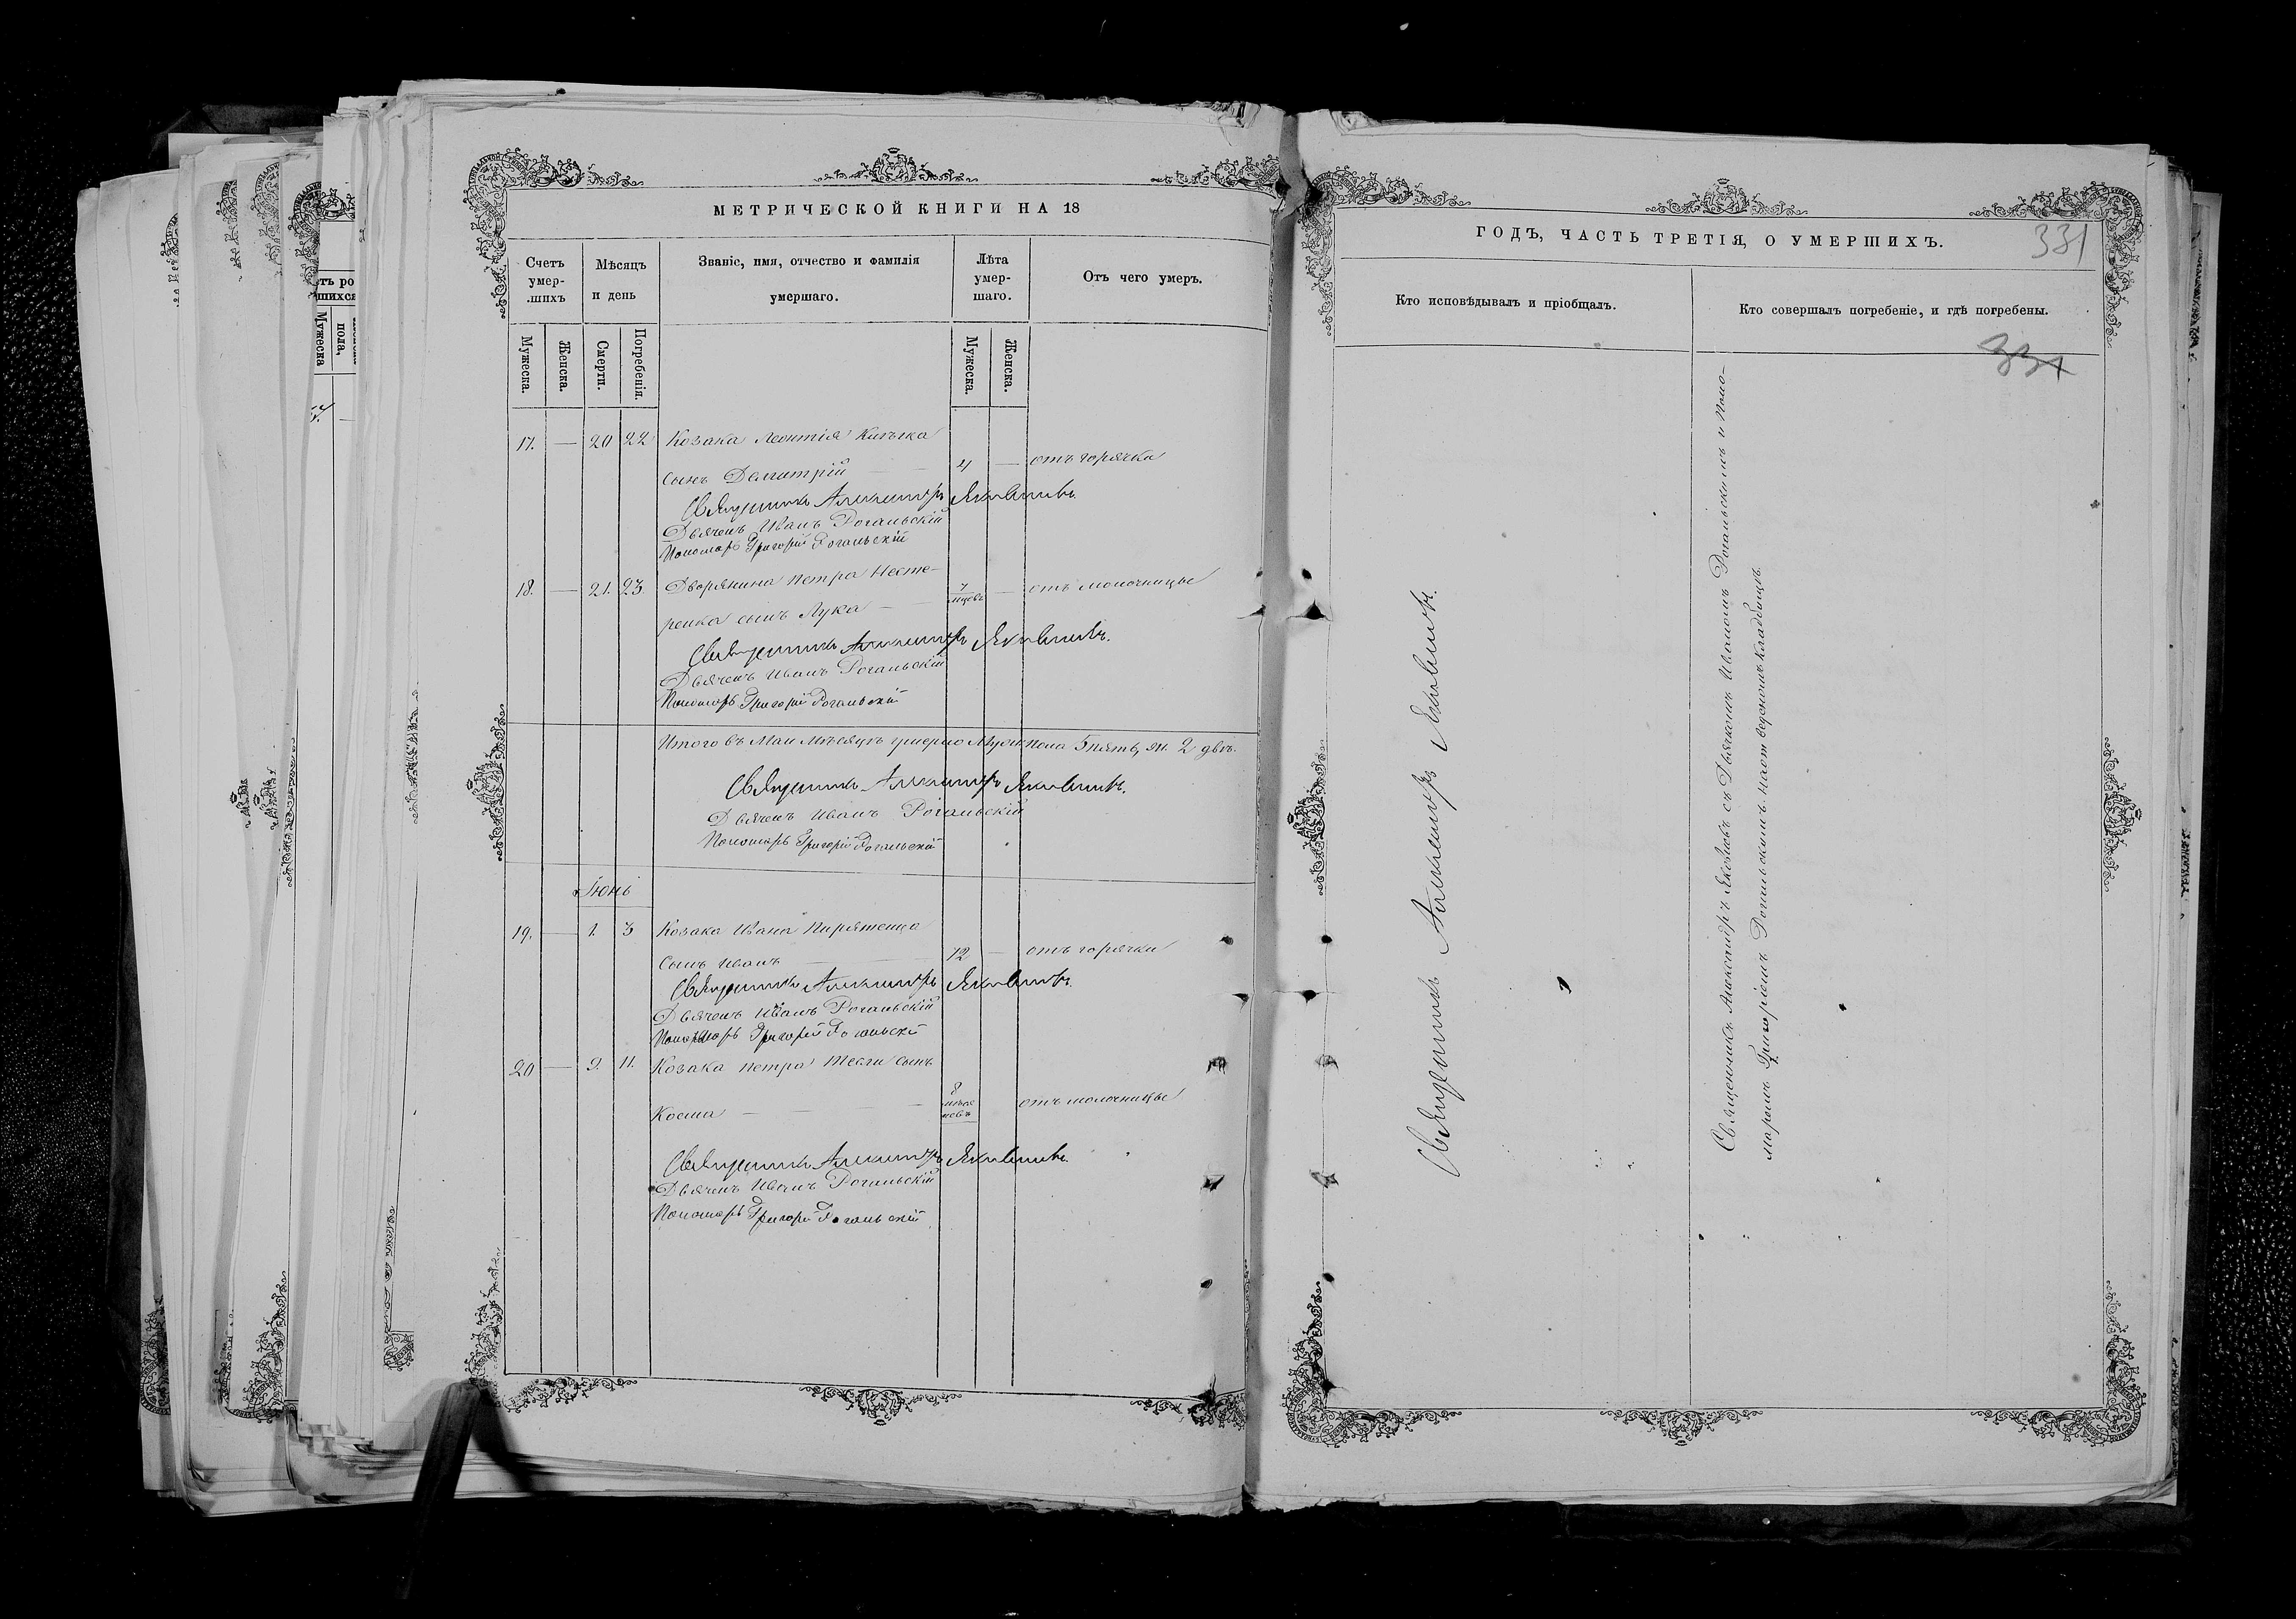 МЕТРИЧЕСКОЙ КНИГИ НА 18
Счетъ умер-шихъ
Мѣсяцъ и день
Званіе, имя, отчество и фамилія умершаго.
Лѣта умер-шаго.
Отъ чего умеръ.
Мужеска.
Женска.
Смерти.
Погребенія.
Мужеска.
Женска.
17. — 20 22 Козака Леонтія
сынъ Димитрій — — 4 — отъ горячки
Священникъ Александръ Яковлевъ.
Дьячекъ Иванъ Рогальскій
Пономарь Григорій Рогальскій
18. — 21. 23. Дворянина Петра Несте-
ренка сынъ Лука — — 7 мцевъ — отъ молочницы
Священникъ Александръ Яковлевъ.
Дьячекъ Иванъ Рогальскій
Пономарь Григорій Рогальскій
Итого въ Маи Мѣсяцѣ умерло Муж. пола 5 пять, Ж. 2 двѣ.
Священникъ Александръ Яковлевъ.
Дьячекъ Иванъ Рогальскій
Пономарь Григорій Рогальскій
Іюнь
19. — 1. 3 Козака Ивана Пирятенца
Сынъ Иванъ — — — 12 — отъ горячки
Священникъ Александръ Яковлевъ.
Дьячекъ Иванъ Рогальскій
Пономарь Григорій Рогальскій
20 — 9. 11. Козака Петра Тесли сынъ
Косма — — — — 8 мѣся цевъ отъ молочницы
Священникъ Александръ Яковлевъ.
Дьячекъ Иванъ Рогальскій
Пономарь Григорій Рогальскій
ГОДЪ, ЧАСТЬ ТРЕТІЯ, О УМЕРШИХЪ.
331
Кто исповѣдывалъ и пріобщалъ.
Кто совершалъ погребеніе, и гдѣ погребены.
331
Священникъ Александръ Яковлевъ.
Священникъ Александръ Яковлевъ съ Дьячкомъ Иваномъ Рогальскимъ и Поно-
маремъ Григоріемъ Рогальскимъ на отведенномъ кладбищѣ.
тъ ро
шихся
Мужеска
пола,
57.